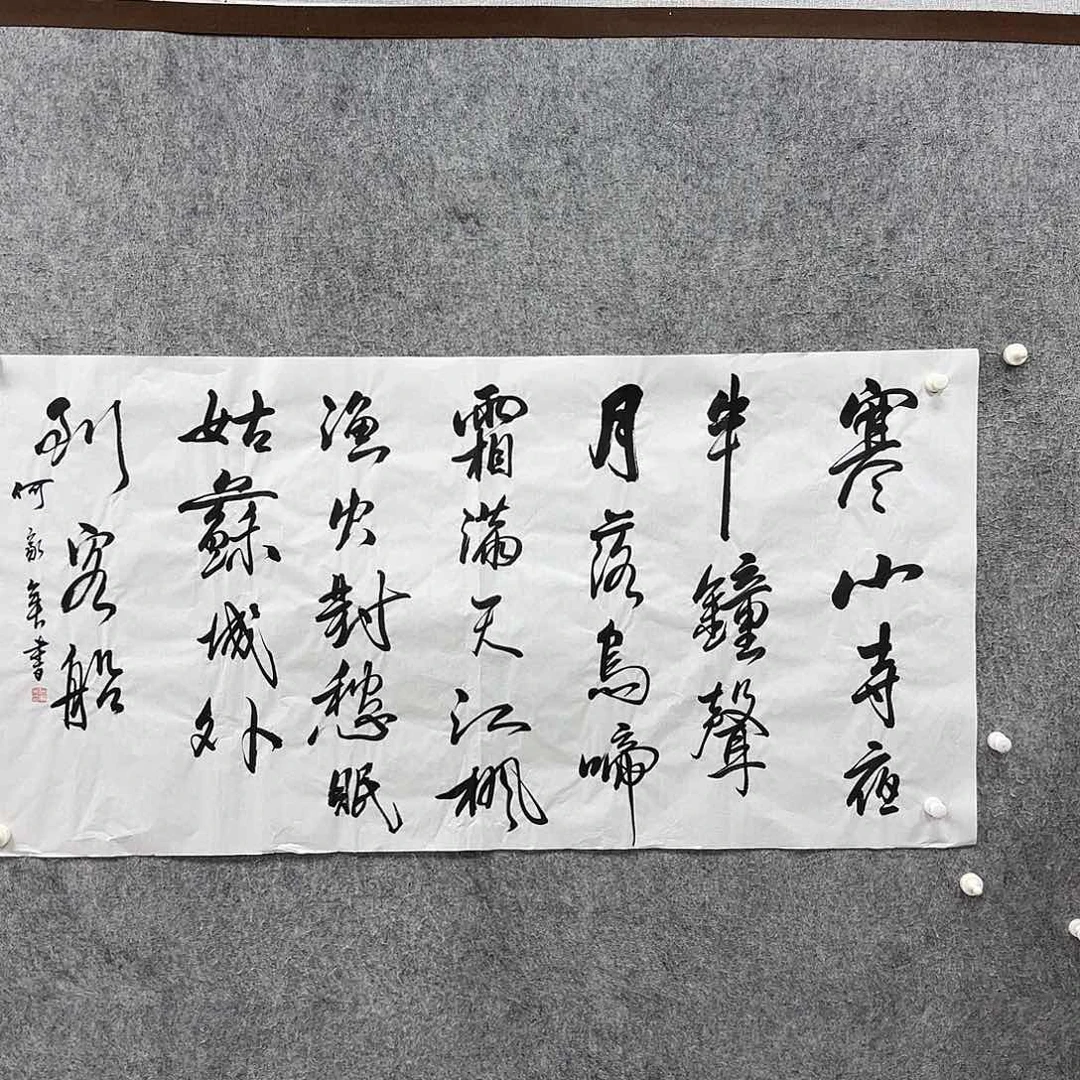 寒山寺夜
半鐘聲
月落烏啼
霜滿天江楓
漁火對愁眠
姑蘇城外
到客船
何書